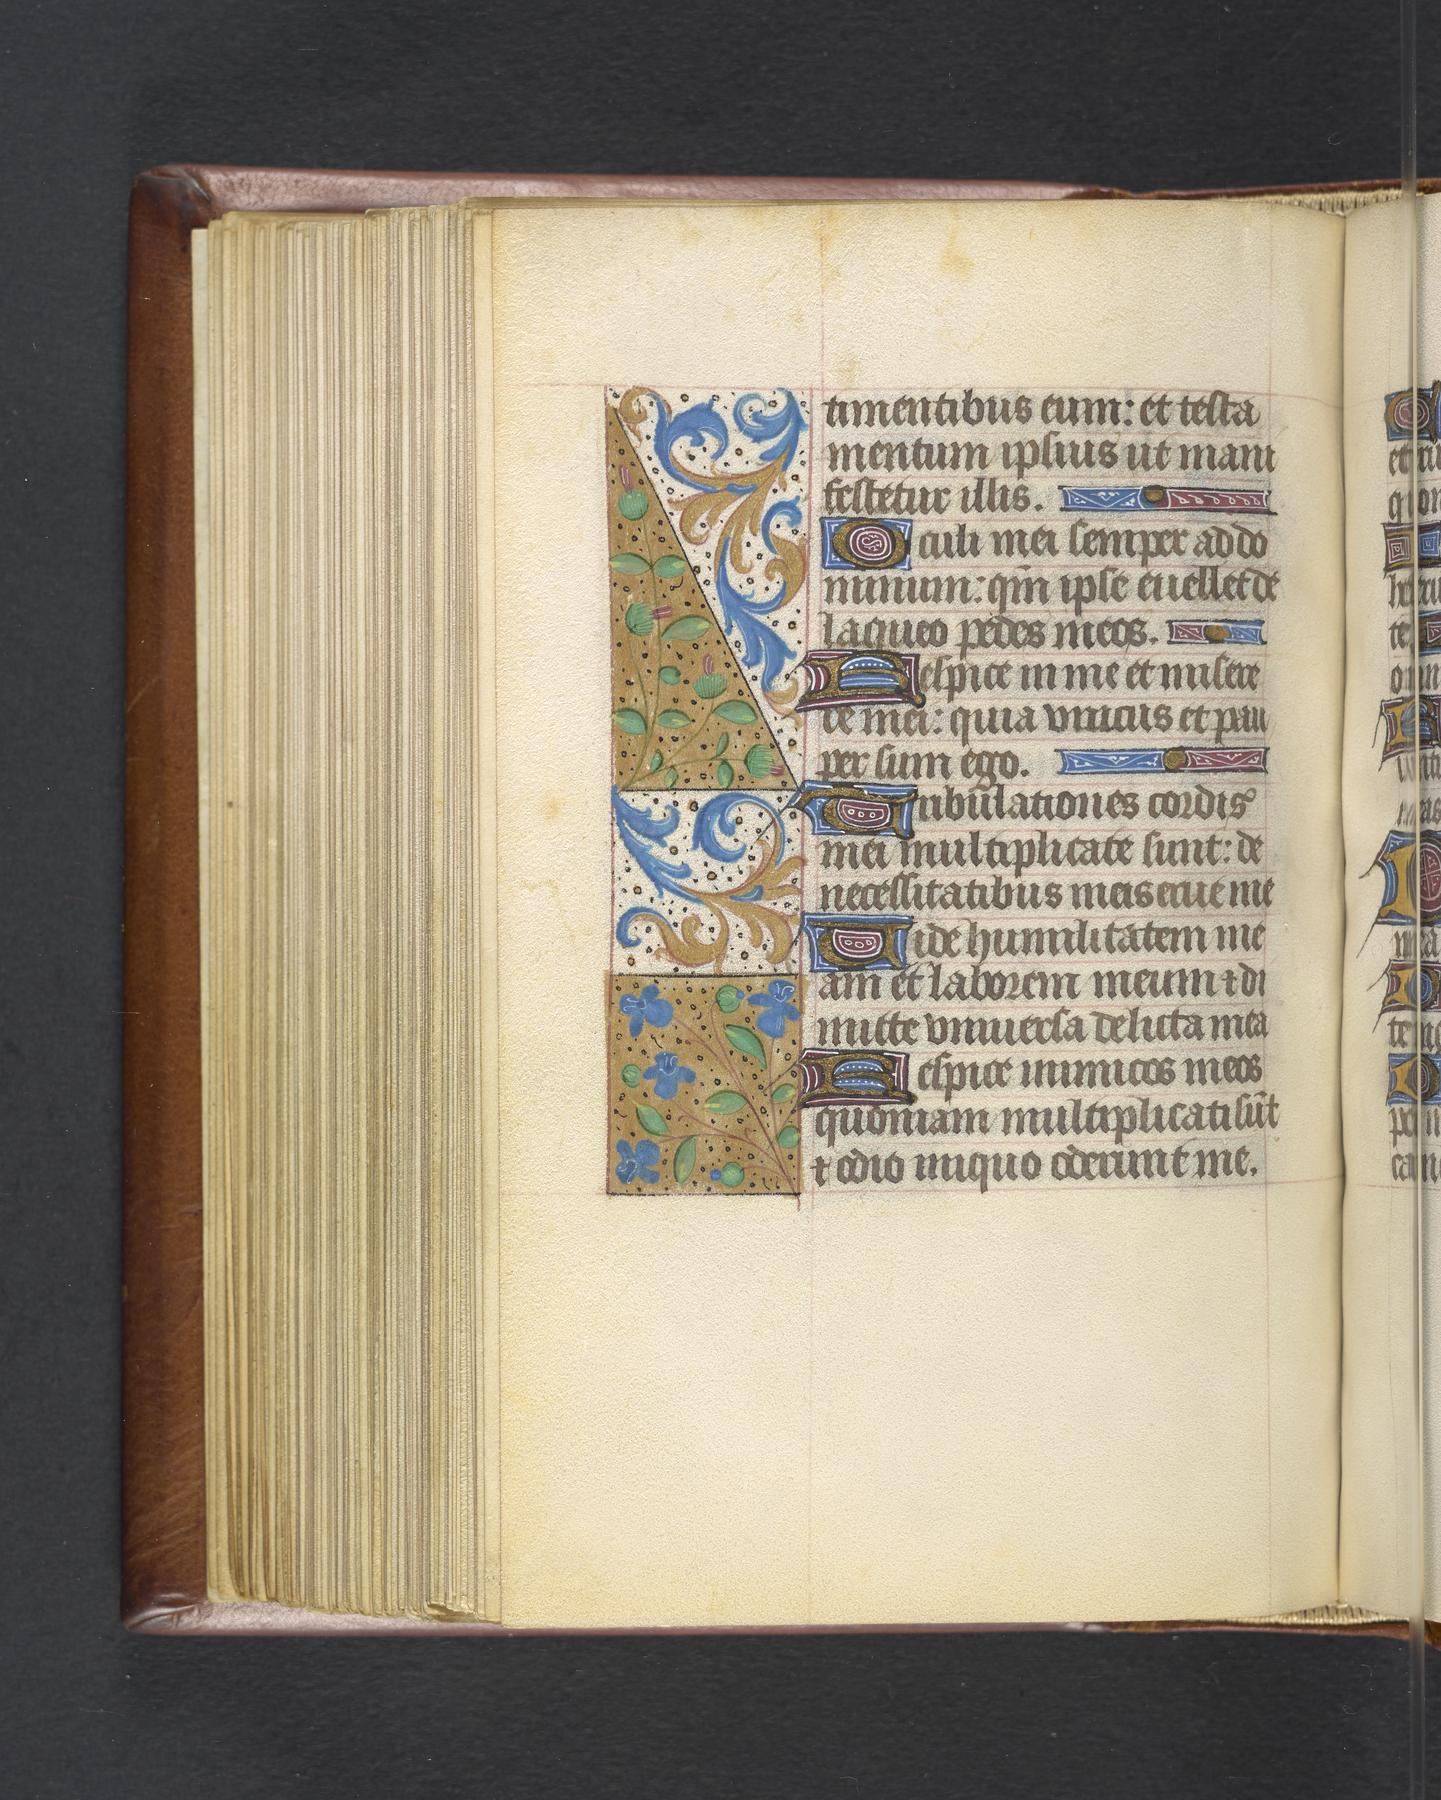 timentibus eum: et testa
mentum ipsius ut mani
festetur illis.
Oculi mei semper ad do
minum: qm̄ ipse euellet de
laqueo pedes meos.
Respice in me et misere
re mei: quia vnicus et pau
per sum ego.
Tribulationes cordis
mei multiplicate sunt: de
necessitatibus meis erue me
Vide humilitatem me
am et laborem meum ⁊ di
mitte vniuersa delicta mea
Respice inimicos meos
quoniam multiplicati sūt
⁊ odio iniquo oderunt me.